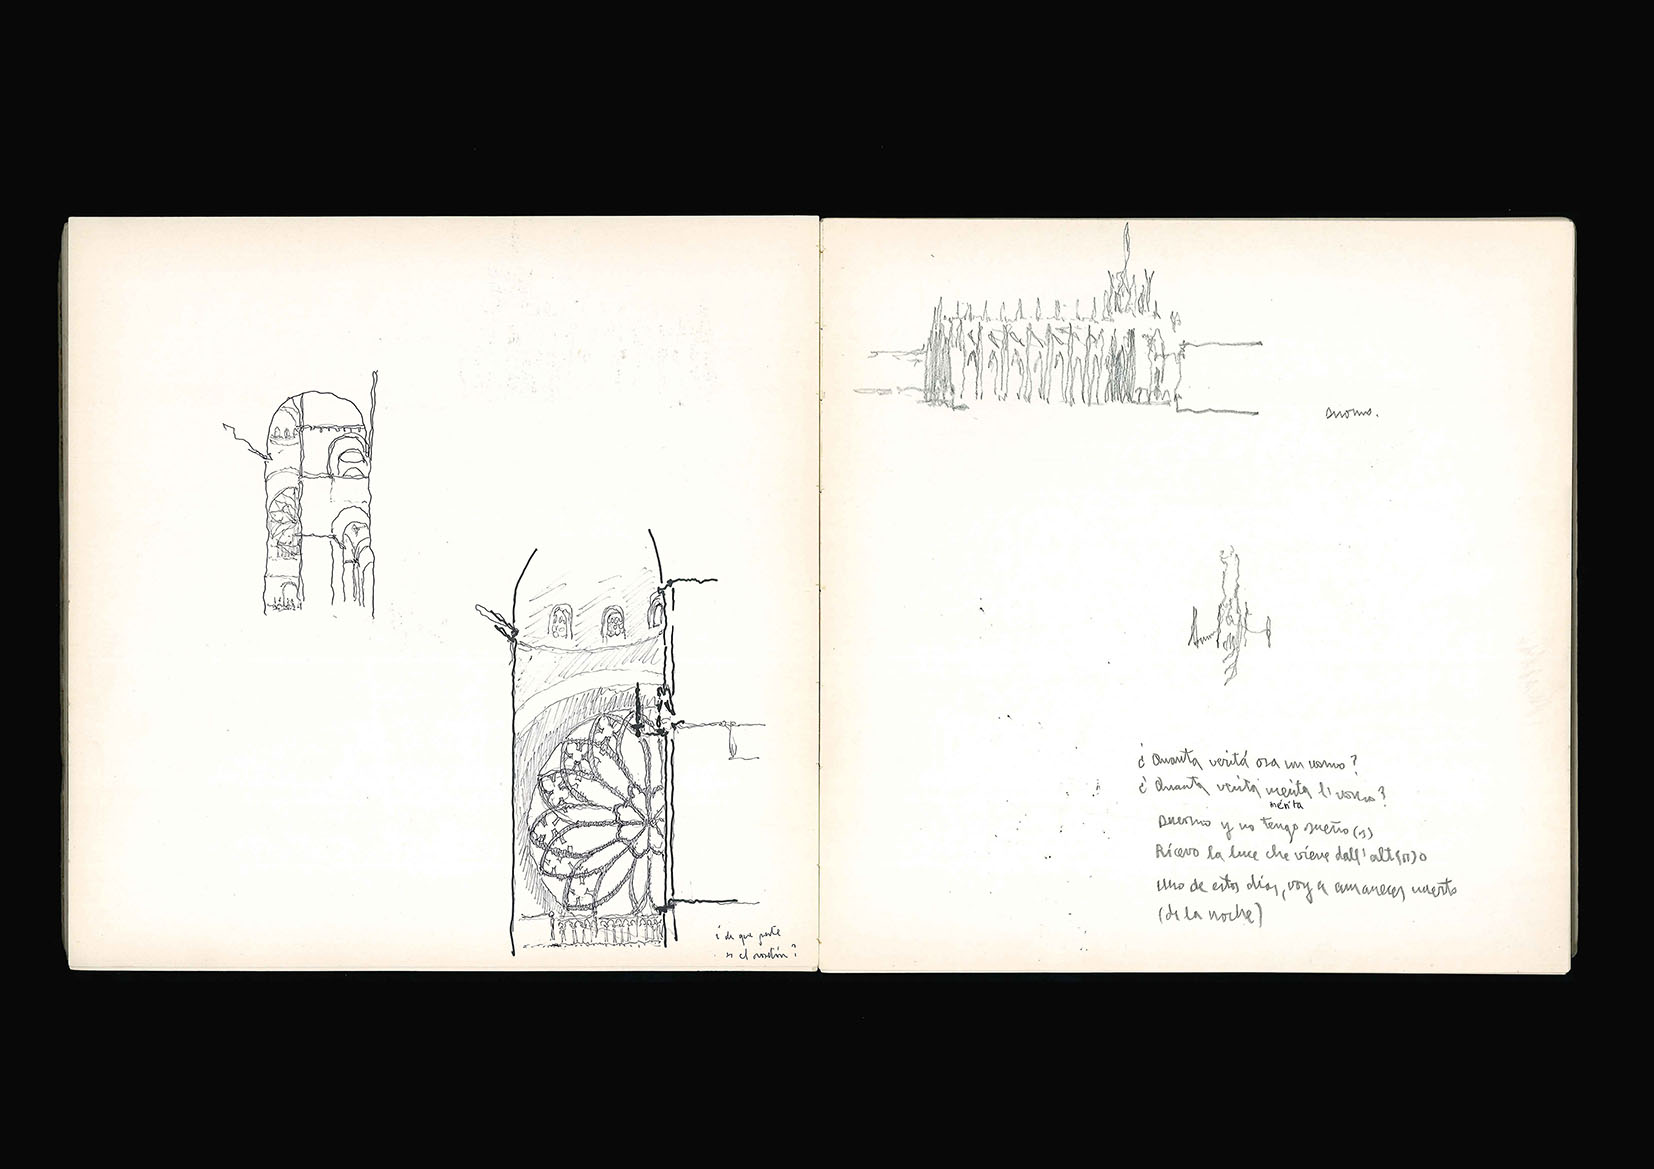 ¿ de que parte
es el rosetón ?
duomo.
¿ Quanta veritá osa un uomo ?
¿ Quanta veritá merita l'uomo ?
mérita
Duermo y no tengo sueño (s)
Ricevo la luce che viene dall'alt(r)o
Uno de estos días, voy a amanecer muerto
(de la noche)